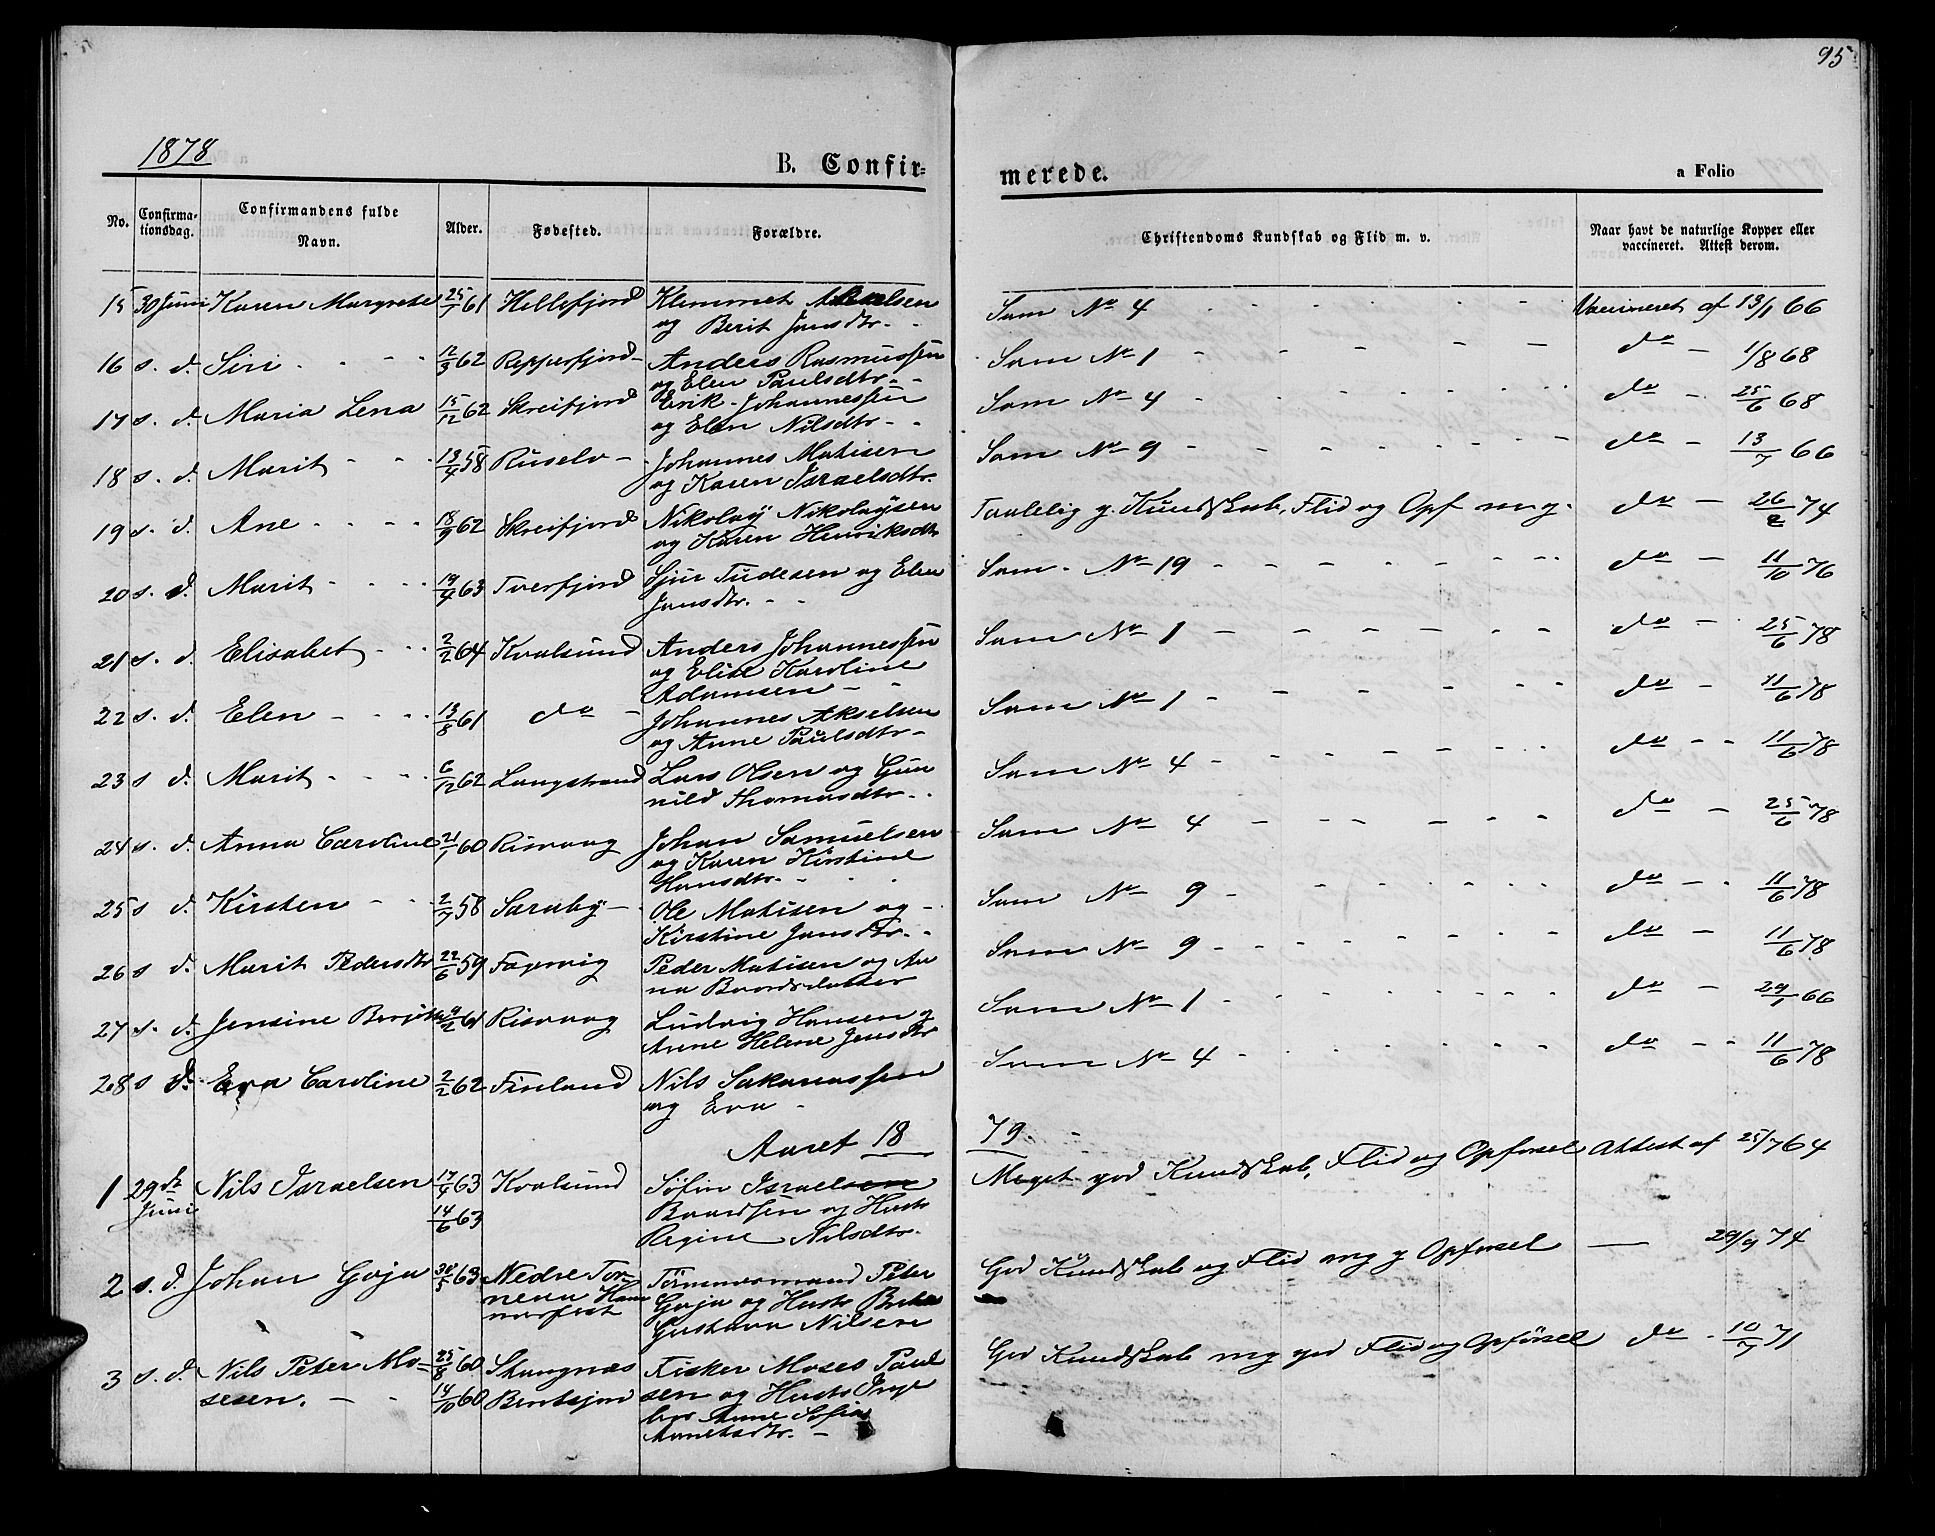 95
1878
B. Confir-
merede.
a Folio
No.
Confirma-
tionsdag.
Confirmandens fulde
Navn.
Alder.
Fødested.
Forældre.
Christendoms Kundskab og Flid m. v.
Naar havt de naturlige Kopper eller
vaccineret. Attest derom.
15 30 Juni Karen Margrete 25/7 61 Hellefjord Klemmet
og Berit Jansdtr. Som No 4 Vaccineret af 13/1 66
16 s. d. Siri 12/3 62 Repperfjord Anders Rasmussen
og Elen Paulsdtr. Som No 1 do 1/8 68
17 s. d. Maria Lena 15/12 62 Skreifjord Erik Johannessen
og Elen Nilsdtr. Som No 4 do 25/6 68
18 s. d. Marit 13/4 58 Ruselv Johannes Matisen
og Karen Israelsdtr. Som No 9 do 13/7 66
19 s. d. Ane 18/9 62 Skreifjord Nikolay Nikolaysen
og Karen Henriksdtr Taalelig g. Kundskab, Flid og Opf mg. do 26/2 74
20 s. d. Marit 19/4 63 Tverfjord Sjur Tudesen og Elen
Jansdtr. Som No 19 do 11/10 76
21 s. d. Elisabet 2/2 64 Kvalsund Anders Johannessen
og Elise Karoline
Adamsen Som No 1 do 25/6 78
22 s. d. Elen 13/8 61 do Johannes Akselsen
og Anne Paulsdtr Som No 1 do 11/6 78
23 s. d. Marit 6/12 62 Langstrand Lars Olsen og Gun
nild Thomasdtr. Som No 4 do 11/6 78
24 s. d. Anna Caroline 21/1 60 Risvaag Johan Samuelsen
og Karen Kirstine
Hansdtr. Som No 4 do 25/6 78
25 s d. Kirsten 2/7 58 Saraby Ole Matisen og
Kirstine Jansdtr. Som No 9 do 11/6 78
26 s d. Marit Pedersdtr 22/6 59 Fægervig Peder Matisen og An
na Baardsdatter Som No 9 do 11/6 78
27 s. d. Jensine Berjitte 9/2 61 Risvaag Ludvig Hansen og
Anne Helene Jensdtr Som No 1 do 29/1 66
28 s d. Eva Caroline 2/2 62 Finland Nils Sakariassen
og Eva Som No 4 do 11/6 78
Aaret 18 79.
1 29de
Juni Nils Israelsen 17/4 63
14/6 63 Kvalsund Søfin Israelsen
Baardsen og Hustr
Regine Nilsdtr. Meget god Kundskab, Flid og Opførsel Attest af 25/7 64
2 s. d. Johan Goja 30/5 63 Nedre Tor-
neau Ham
merfest Tømmermand Peter
Goja og Hustr
Gustava Nilsen God Kundskab og Flid mg g Opførsel 29/9 74
3 s. d. Nils Peter Mo-
sesen. 25/8 60
14/10 60 Skangnæs
Bentsjord Fisker Moses Paul
sen og Hustr Inge
bor Anne Sofia
God Kundskab mg god Flid og Opførsel do 10/7 71